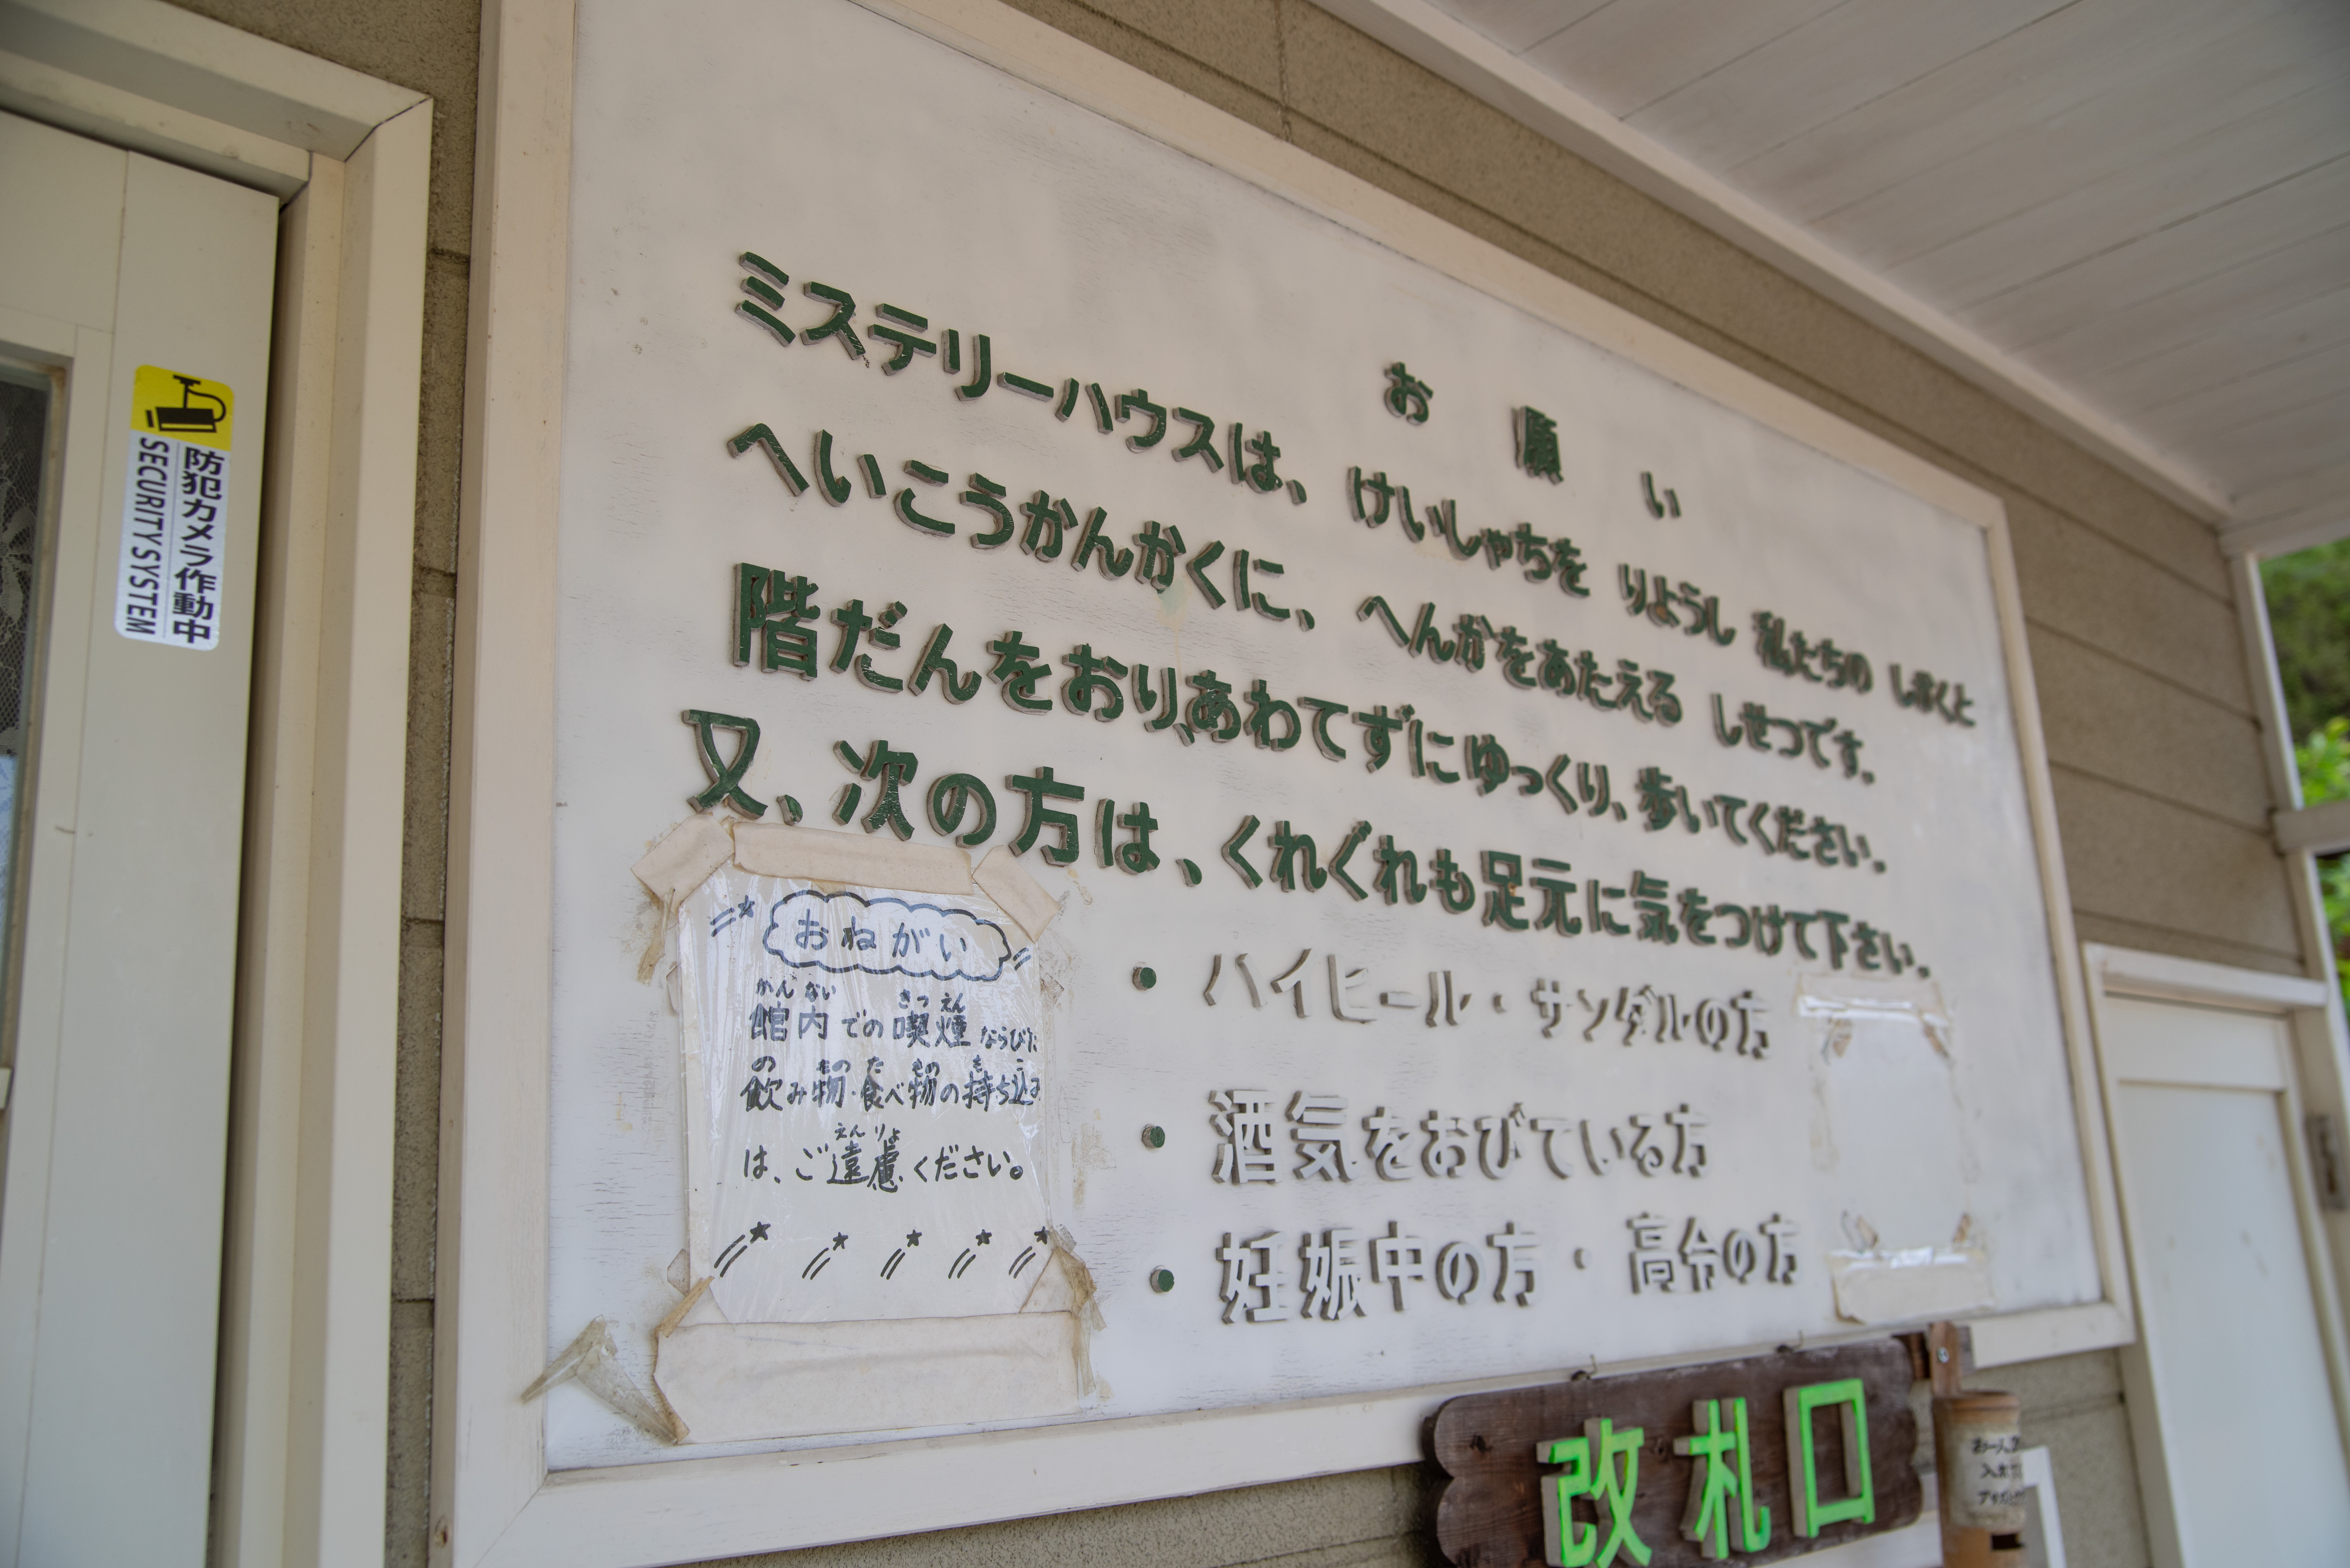 防犯カメラ作動中
SECURITY SYSTEM
お願い
ミステリーハウスは、けいしゃちを りようし 私たちの しかくと
へいこうかんかくに、へんかをあたえる しせつです。
階だんをおり、あわてずにゆっくり、歩いてください。
又、次の方は、くれぐれも足元に気をつけて下さい。
・ハイヒール・サンダルの方
・酒気をおびている方
・妊娠中の方・高令の方
おねがい
かんない きつえん
館内での喫煙ならびに
の もの た もの も こ
飲み物・食べ物の持ち込み
えんりょ
は、ご遠慮ください。
改札口